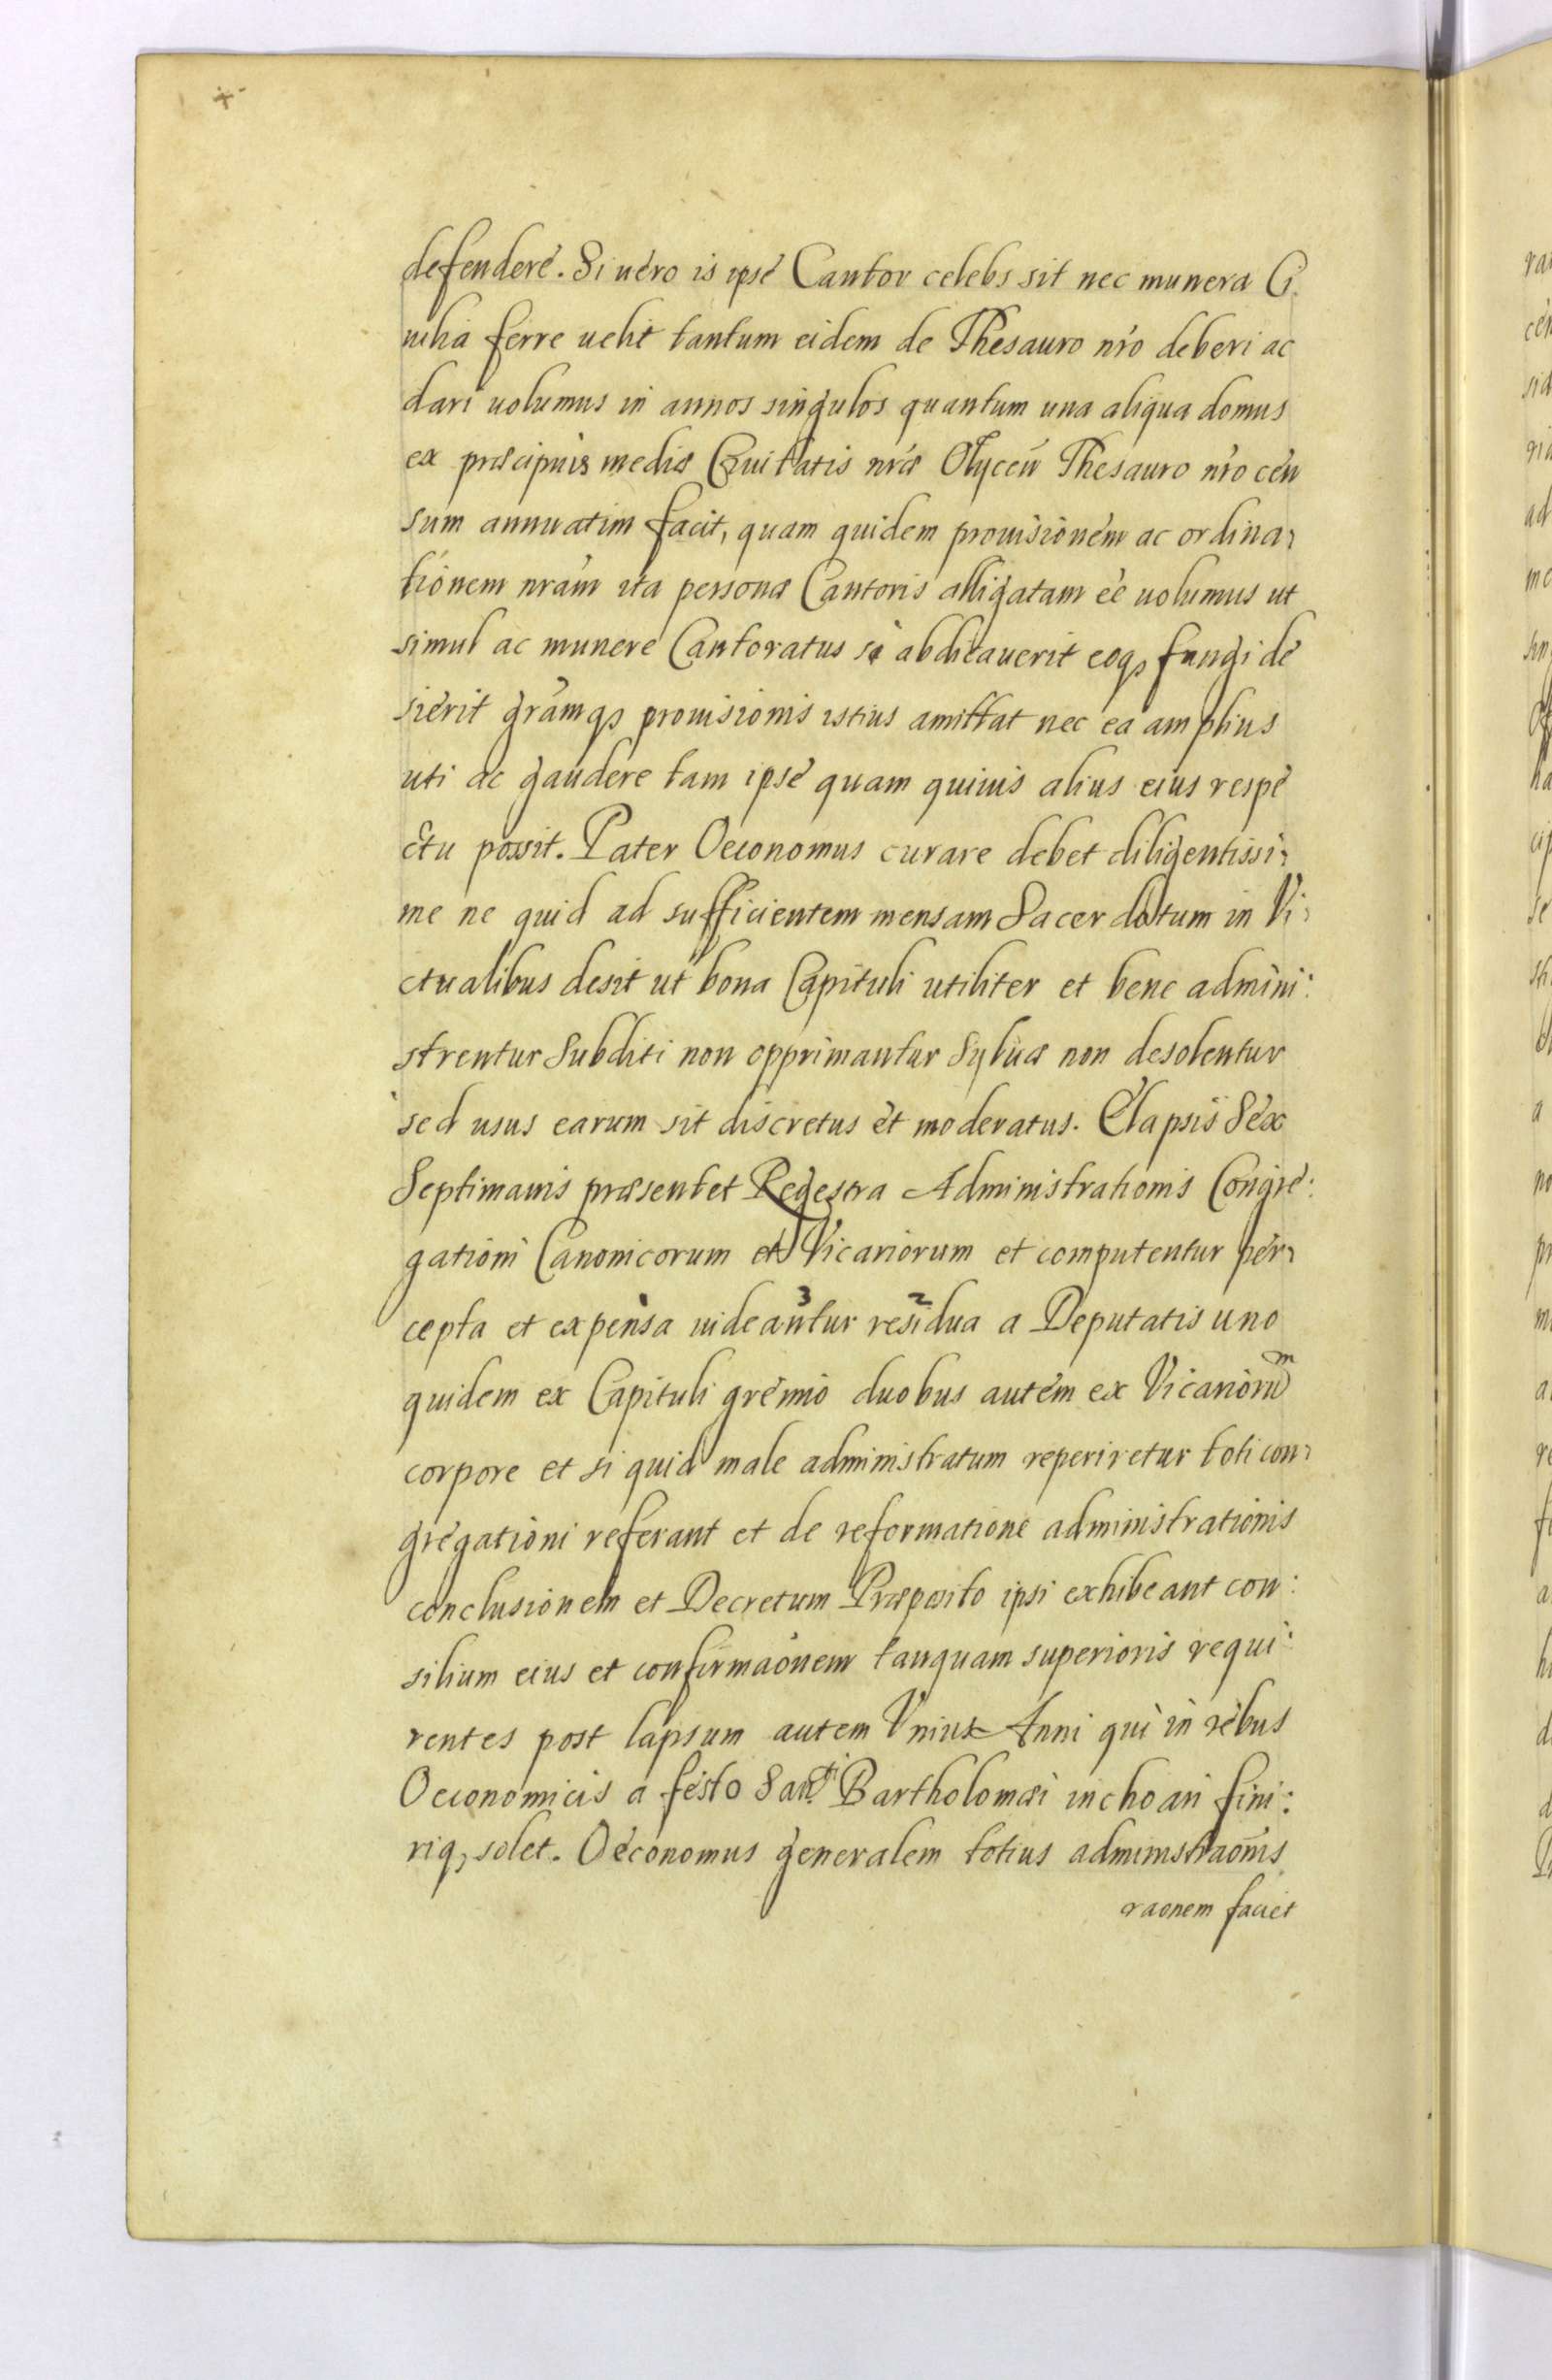 defendere. Si uero is ipse Cantor celebs sit nec munera Ci
uilia ferre uelit tantum eidem de Thesauro nro deberi ac
dari uolumus in annos singulos quantum una aliqua domus
ex præcipuis mediæ Ciuitatis nræ Olyceñ Thesauro nro cen
sum annuatim facit, quam quidem prouisionem ac ordina,
tionem nram ita personæ Cantoris alligatam ee uolumus ut
simul ac munere Cantoratus se abdicauerit eoq3 fungi de
sierit gramq3 prouisionis istius amittat nec ea amplius
uti ac gaudere tam ipse quam quiuis alius eius respe
ctu possit. Pater Oeconomus curare debet diligentissi,
me ne quid ad sufficientem mensam Sacerdotum in Vi,
ctualibus desit ut bona Capituli utiliter et bene admini:
strentur Subditi non opprimantur Syluæ non desolentur
sed usus earum sit discretus et moderatus. Elapsis Sex
Septimanis præsentet Regestra Administrationis Congre:
gationi Canonicorum et Vicariorum et computentur per,
cepta et expensa uideantur 3 residua 2 a Deputatis uno
quidem ex Capituli gremio duobus autem ex Vicarioru͂m
corpore et si quid male administratum reperiretur toti con,
gregationi referant et de reformatione administrationis
conclusionem et Decretum Præposito ipsi exhibeant con:
silium eius et confirmaonem tanquam superioris requi:
rentes post lapsum autem Vnius Anni qui in rebus
Oeconomicis a festo Sancti Bartholomæi inchoari fini:
riq3 solet. Oeconomus generalem totius administraonis
raonem faciet